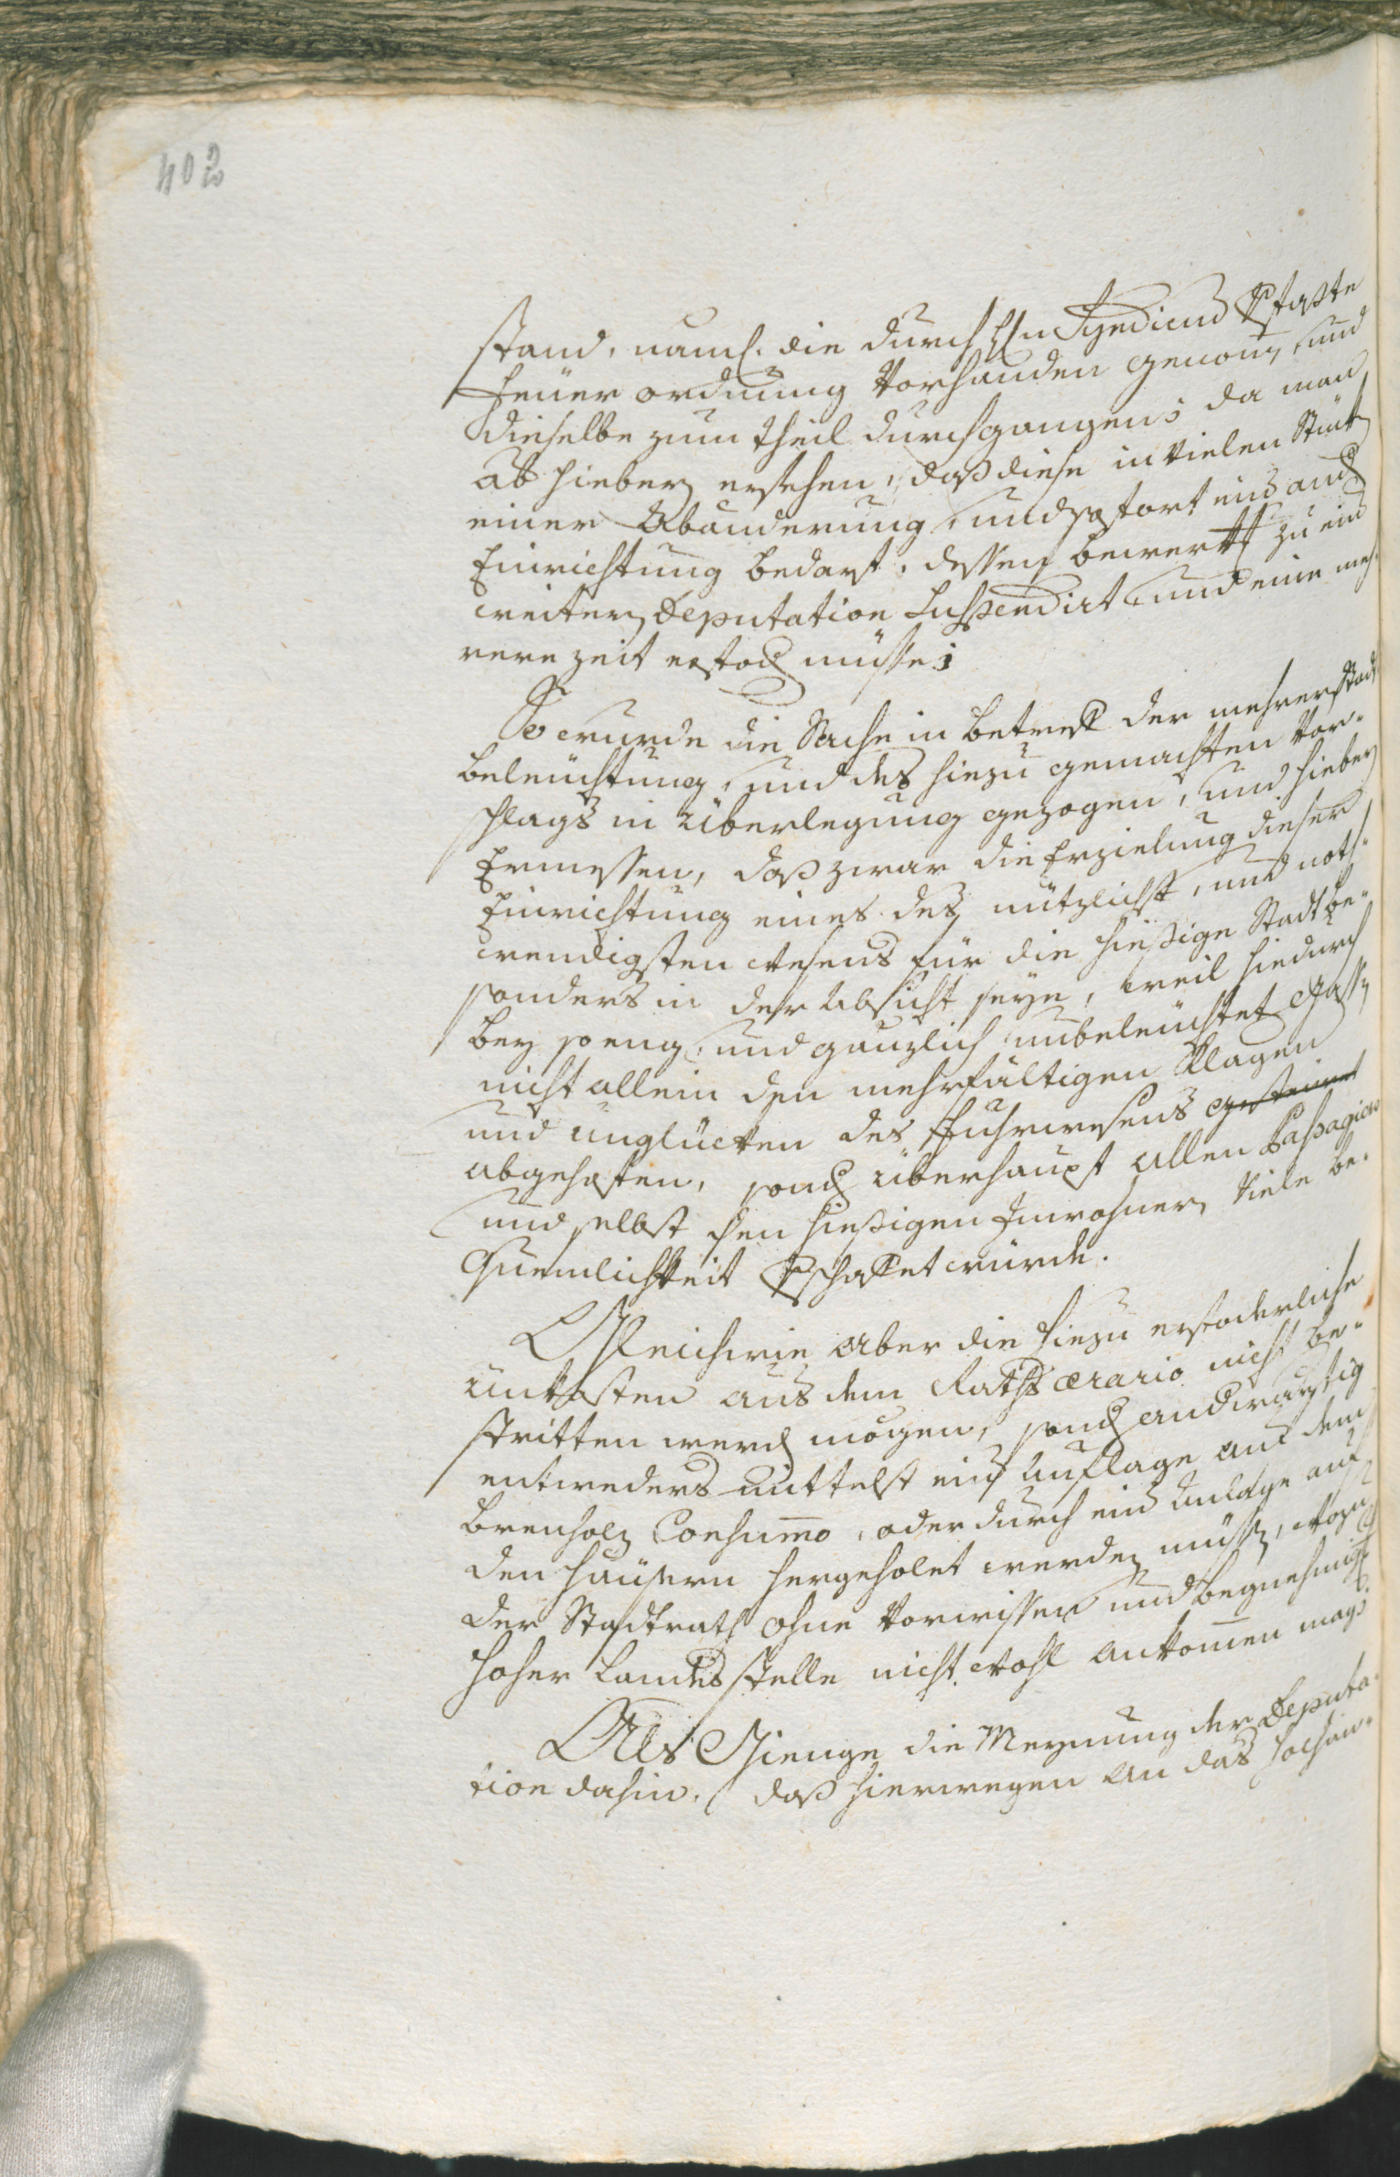 402
stand, naml. die durch H. Syndicus Verfaßte
Feüer ordnung Vorhanden genom̄, und
dieselbe zum theil durchgangen; da man
ab hiebey ersehen, daß diese in Vielen Stük
einer Abänderung, und sofort eins and
Einrichtung bedarf, dessen bewerk zu ein
weitern Deputation Suspendirt und eine meh-
rere zeit erfod müsse;
So wurde die Sache in betreff der mehrern Stadt
beleüchtung, und des hiezu gemachten Vor-
schlags in Überlegung gezogen, und hiebey
Ermessen, daß zwar die Erzielung dieser
Einrichtung eines des nützlichst, und noth-
wendigsten Wesens für die hießige Stadt be-
sonders in der Absicht seye, weil hiedurch
bey so eng, und gänzlich unbeleüchtet Gassen
nicht allein den mehrfältigen Klagen
und unglücken des Fuhrwesens
abgeholfen, sond überhaupt allen Passagiers
und selbst den hießigen Inwohnern Viele be-
quemlichkeit Verschaffet würde.
Gleichwie aber die hiezu erfoderliche
unkösten aus dem Raths ærario nicht be-
stritten werd mögen, sond andwärtig
entweders mittelst eins Auflage auf dem
brenholz Consumo, oder durch eine Anlage auf
den häusern hergeholet werden müsse, wozu
der Stadtrath ohne Vorwissen und begnehmig
hoher Landesstelle nicht wohl ankom̄en mag;
Als Gienge die Meynung der Deputa-
tion dahin, daß hierwegen an das hochan-